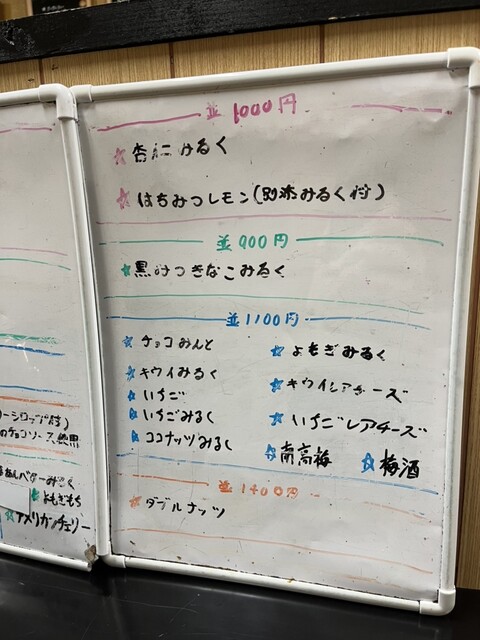 並 1000円
☆杏仁みるく
☆はちみつレモン(別添みるく付)
並 900円
☆黒みつきなこみるく
並 1100円
☆チョコみんと ☆よもぎみるく
☆キウイみるく ☆キウイレアチーズ
☆いちご
☆いちごみるく ☆いちごレアチーズ
☆ココナッツみるく ☆南高梅 ☆梅酒
並 1400円
☆ダブルナッツ
ーシロップ付)
のチョコソース
バターみるく
☆よもぎもち
☆アメリカンチェリー